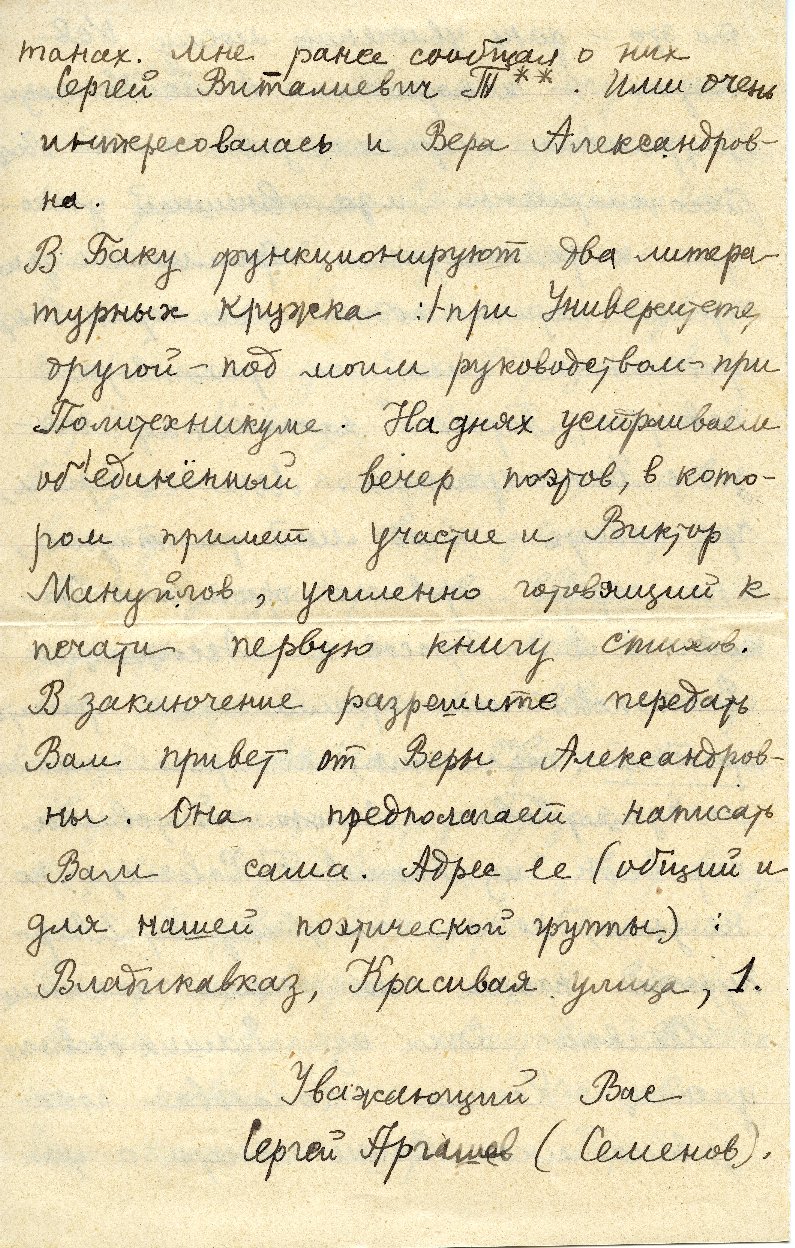 танах. Мне ранее сообщал о них
Сергей Виталиевич Т**. Ими очень
интересовалась и Вера Александров-
на.
В Баку функционируют два литера-
турных кружка: 1-при Университете,
другой - под моим руководством - при
Политехникуме. На днях устраиваем
об'единённый вечер поэтов, в кото-
ром примет участие и Виктор
Мануйлов, усиленно готовящий к
печати первую книгу стихов.
В заключение разрешите передать
Вам привет от Веры Александров-
ны. Она предполагает написать
Вам сама. Адрес ее (общий и
для нашей поэтической группы):
Владикавказ, Красивая улица, 1.
Уважающий Вас
Сергей Аргашев (Семенов).